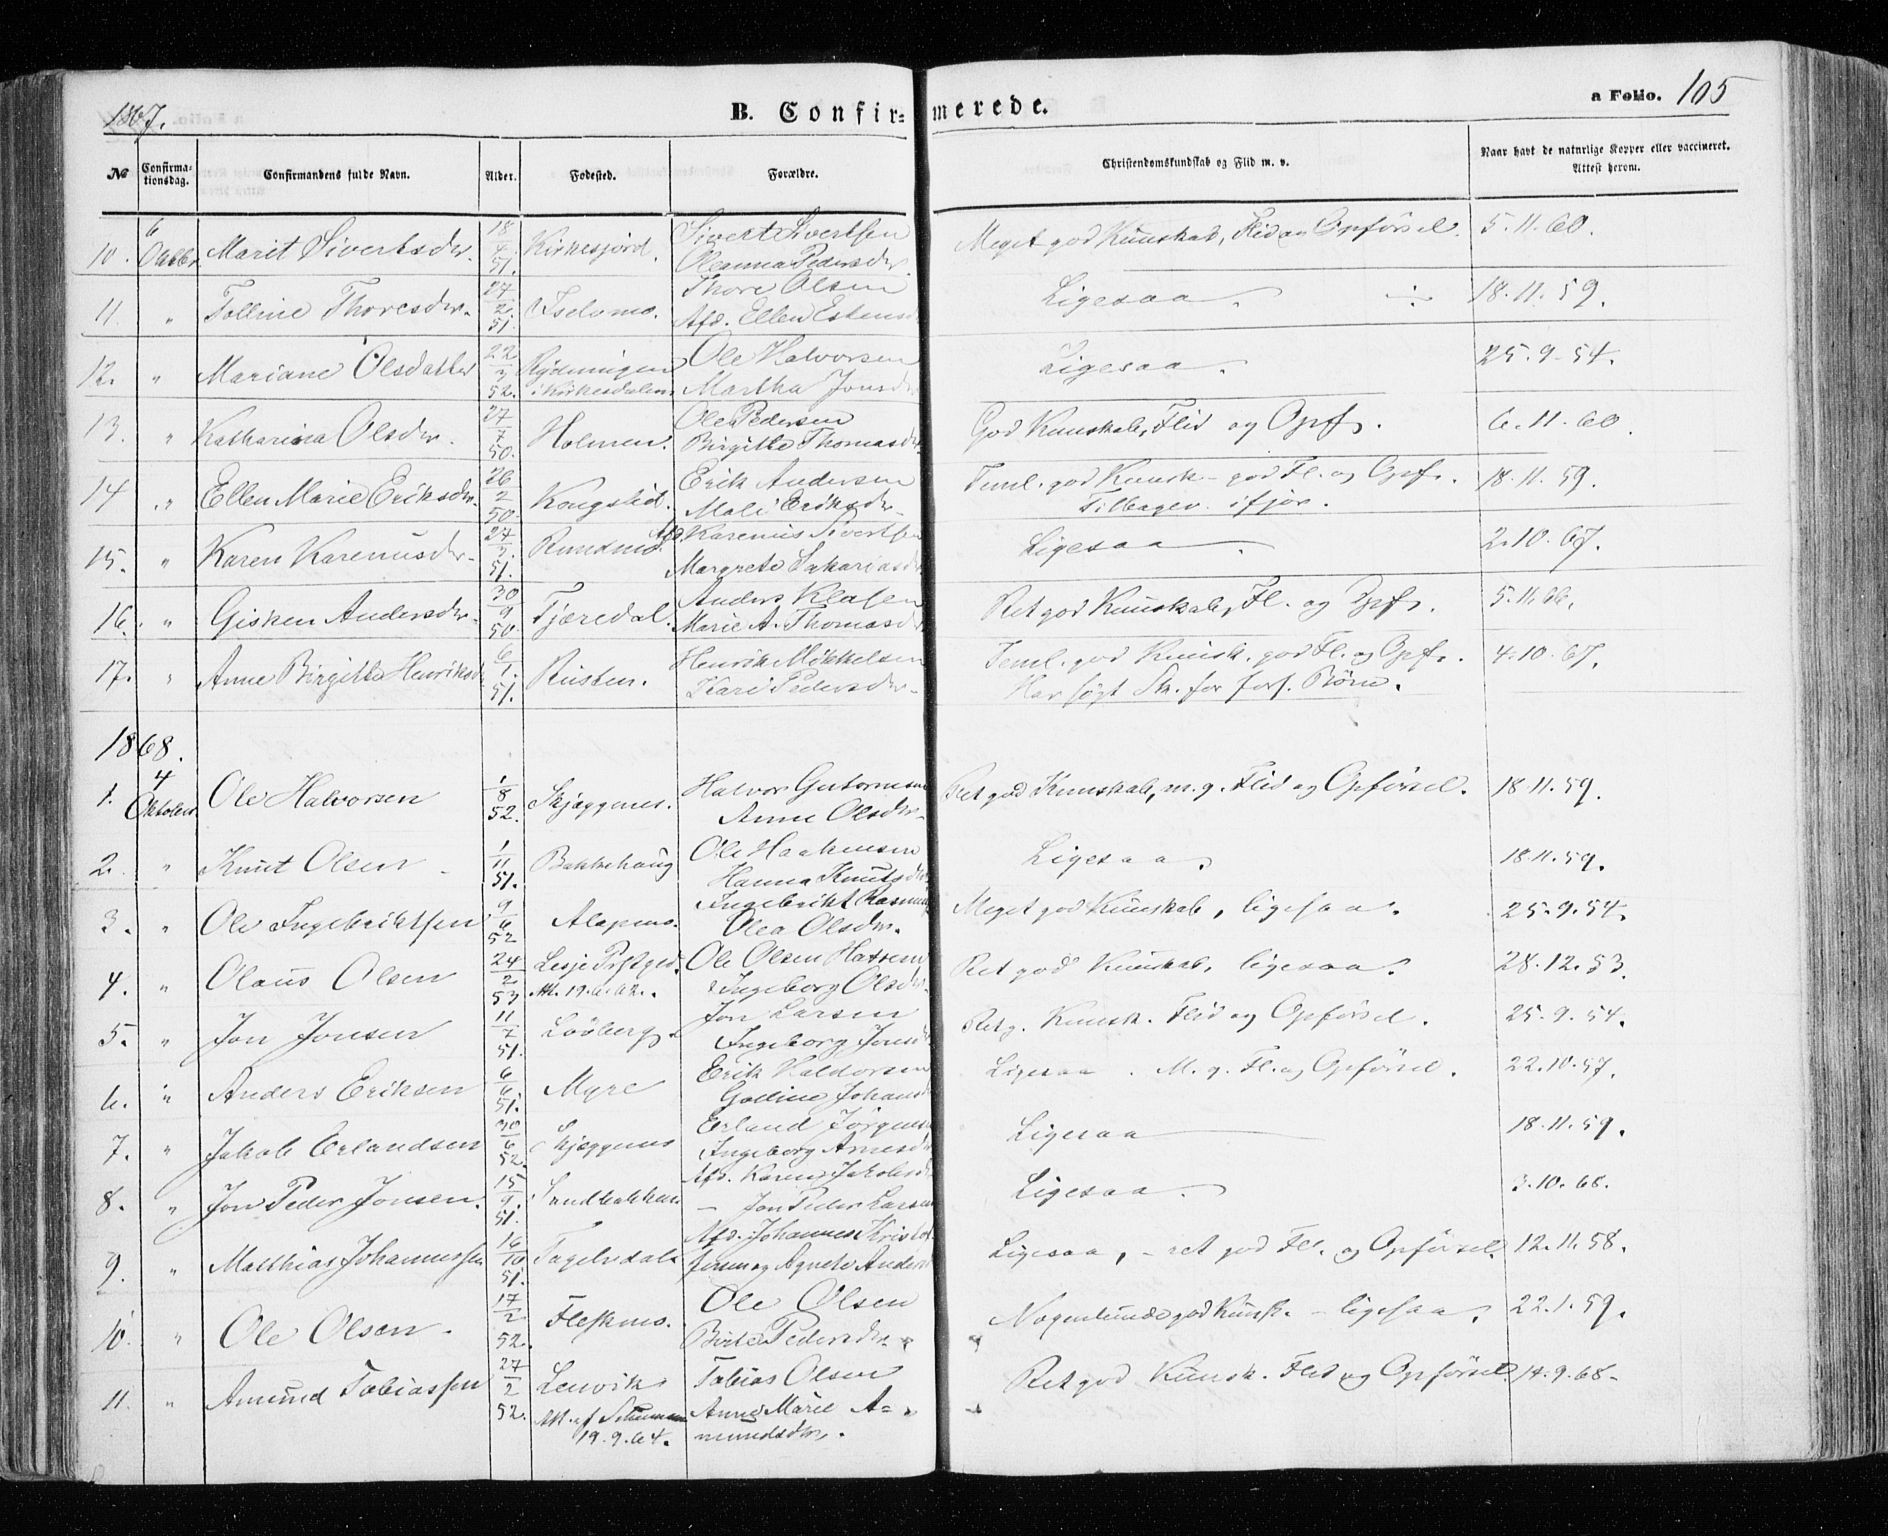 1867.
B. Confir- merede.
a Folio. 105
No
Confirma-
tionsdag.
Confirmandens fulde Navn.
Alder.
Fødested.
Forældre.
Christendomskundskab og Flid m. v.
Naar havt de naturlige Kopper eller vaccineret.
Attest herom.
10. 6 Octbr. Marit Sivertsdr. 18/4 51. Kirkesjord. Sivert Sivertsen Oleanna Pedersdr. Meget god Kunskab, Flid og Opførsel. 5.11.60.
11. " Thoresdr. 27/2 51. Iselvmo. Thore Olsen Afd. Ellen Estensd Ligesaa. 18.11.59.
12. " Mariane Olsdatter 22/3 52. Rydningen i Kirkesdalen Ole Halvorsen Martha Jonsd Ligesaa. 25.9.54.
13. " Katharina Olsdr. 27/7 50. Holmen. Ole Pedersen Birgitte Thomasdr. God Kunskab, Flid og Opf. 6.11.60.
14 " Ellen Marie Eriksdr. 26/2 50. Kongslid. Erik Andersen Mali Eriksdr. Teml. god Kunsk. god Fl. og Opf. 18.11.59.
Tilbagev. ifjor.
15. " Karen Karenusdr. 27/3 51. Rundmo. Afd. Karenus Sivertsen Margrete Sakariasd Ligesaa. 2.10.67.
16. " Gisken Andersdr. 30/9 50. Tjæredal. Anders Klasen Marie A. Thomasdr Ret god Kunskab, Fl. og Opf. 5.11.66.
17. " Anne Birgitte Henriksd 6/1. 51. Rusten. Henrik Mikkelsen Kari Pedersdr. Teml. god Kunsk. god Fl. og Opf. 4.10.67.
Har søgt Sk. for fors. Børn.
1868.
1. 4 Oktober Ole Halvorsen 1/8 52. Skjæggenes. Halvor Gutormsen Anne Olsdr. Ret god Kunskab, m. g. Flid og Opførsel. 18.11.59.
2. " Knut Olsen 1/11 51. Bakkehaug Ole Haakensen Hanna Knutsdr Ligesaa. 18.11.59.
3. " Ole Ingebriktsen 9/6 52 Alapmo. Ingebrikt Rasmus Olea Olsdr. Meget god Kunskab, ligesaa. 25.9.54.
4. " Olaus Olsen 24/2 53 Lesje Prstgd. Att. 19.6.62. Ole Olsen Hatrem Ingeborg Olsdr. Ret god Kunskab, ligesaa. 28.12.53.
5. " Jon Jonsen 11/7 51. Løvberg. Jon Larsen Ingeborg Jonsd Ret g. Kunsk. Flid og Opførsel. 25.9.54.
6. " Anders Eriksen 6/6 51. Myre Erik Haldorsen Golline Johansd Ligesaa. M. g. Fl. og Opførsel. 22.10.57.
7. " Jakob Erlandsen 30/6 52. Skjæggenes Erland Jørgens Ingeborg Arnesd Ligesaa 18.11.59.
8. " Jon Peder Jonsen. 15/9 51. Sandbakken Afd. Karen Jakobsd — Jon Peder Larsen Ligesaa. 3.10.68.
9. " Matthias Johannessen 16/10 51. Fagelvdal. Afd. Johannes Kristof- fersen og Agnete Anders Ligesaa, – ret god Fl. og Opførsel. 12.11.58.
10. " Ole Olsen. 17/2 52. Fleskmo. Ole Olsen Birte Pedersdr. Nogenlunde god Kunsk. – ligesaa. 22.1.59.
11. " Amund Tobiassen 27/2 52. Lenvik Att. af 19.9.64. Tobias Olsen Anne Marie A- mundsdr. Ret god Kunsk. Flid og Opførsel 14.9.68.